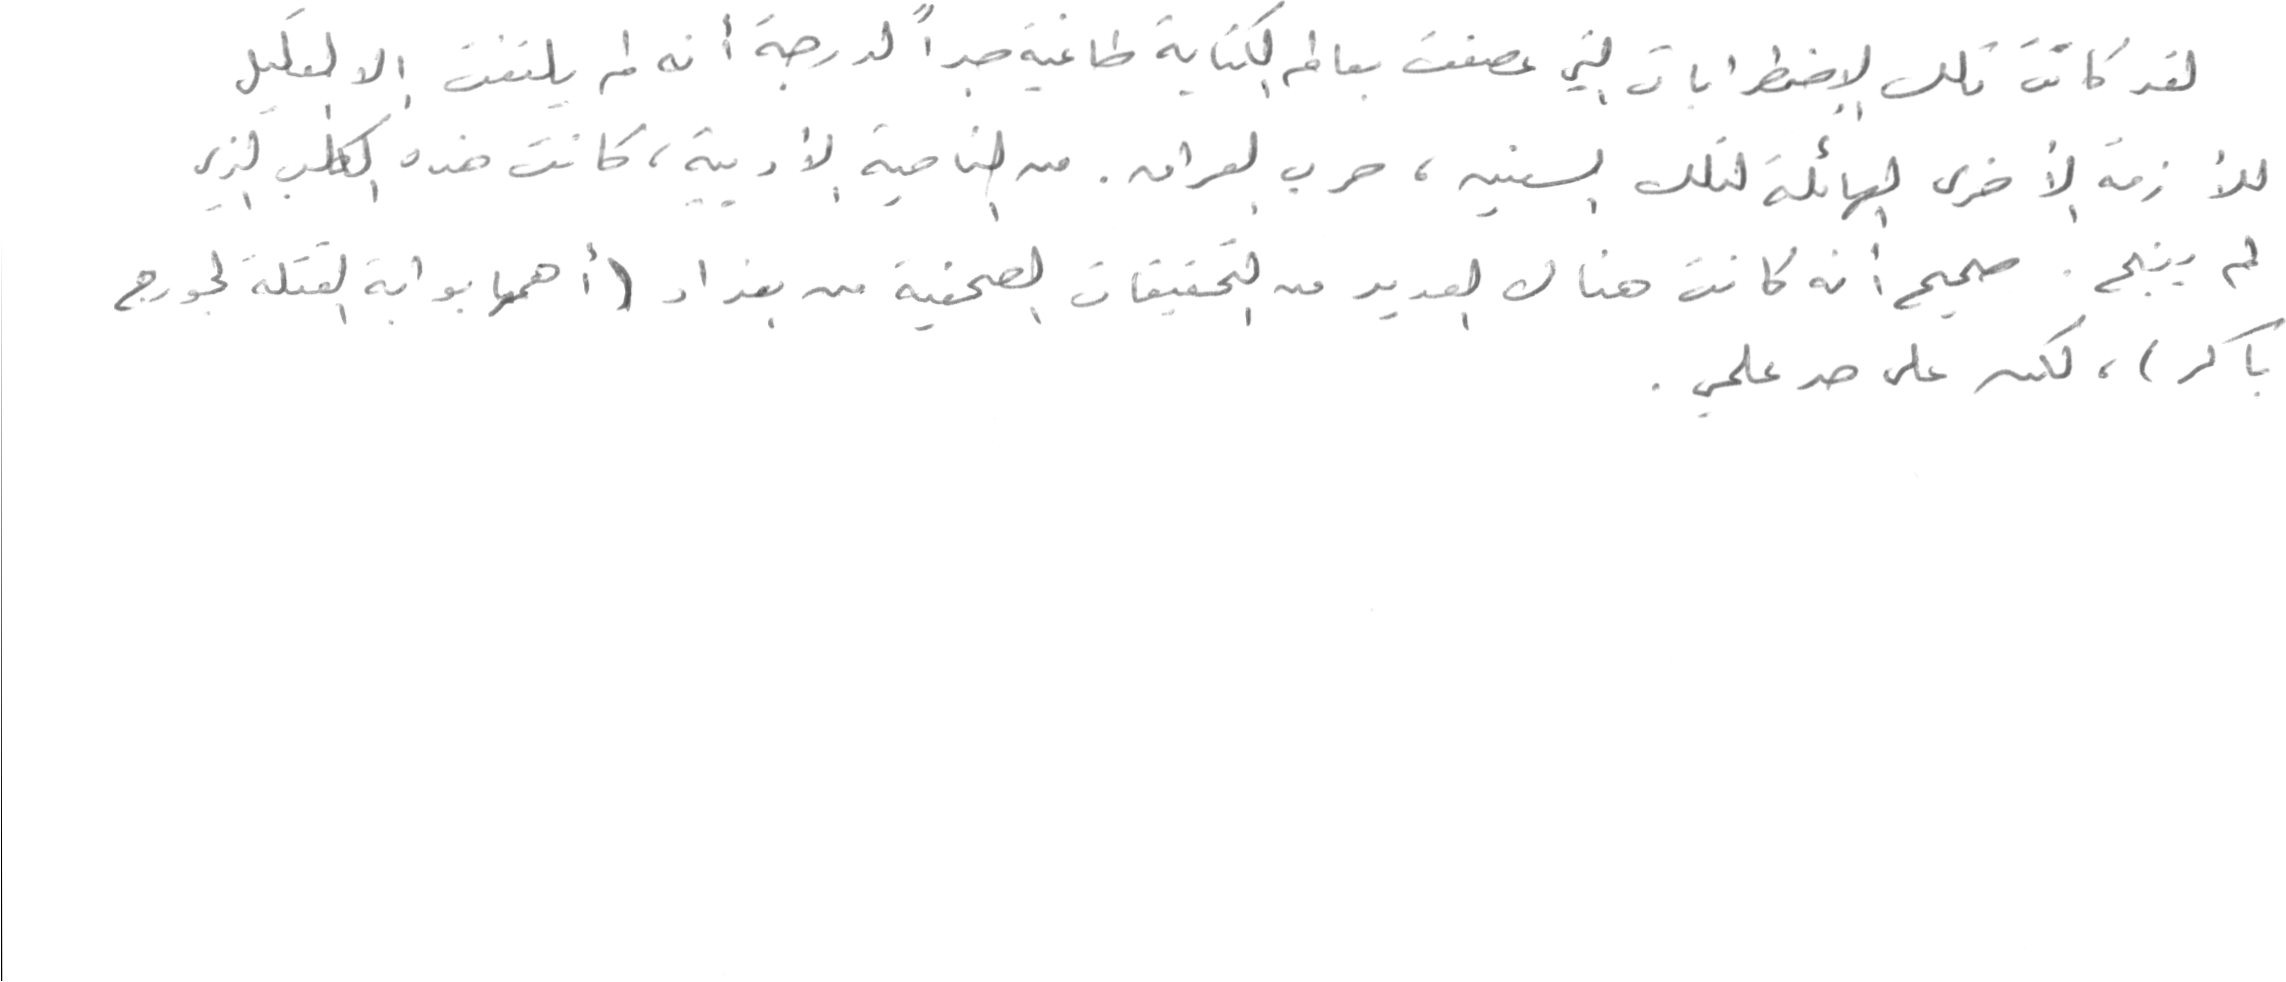 لقد كانت تلك الإضطرابات التي عصفت بعالم الكتابة طاغية جداً لدرجة أنه لم يلتفت إلا القليل
للأزمة الأخرى الهائلة لتلك السنين، حرب العراق. من الناحية الأدبية، كانت هذه الكلب الذي
لم ينبح. صحيح أنه كانت هناك العديد من التحقيقات الصحفية من بغداد (أهمها بوابة القتلة لجورج
باكر)، لكن على حد علمي.